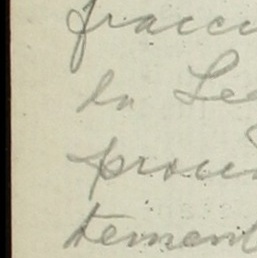 fracci
la Le
prov
tement